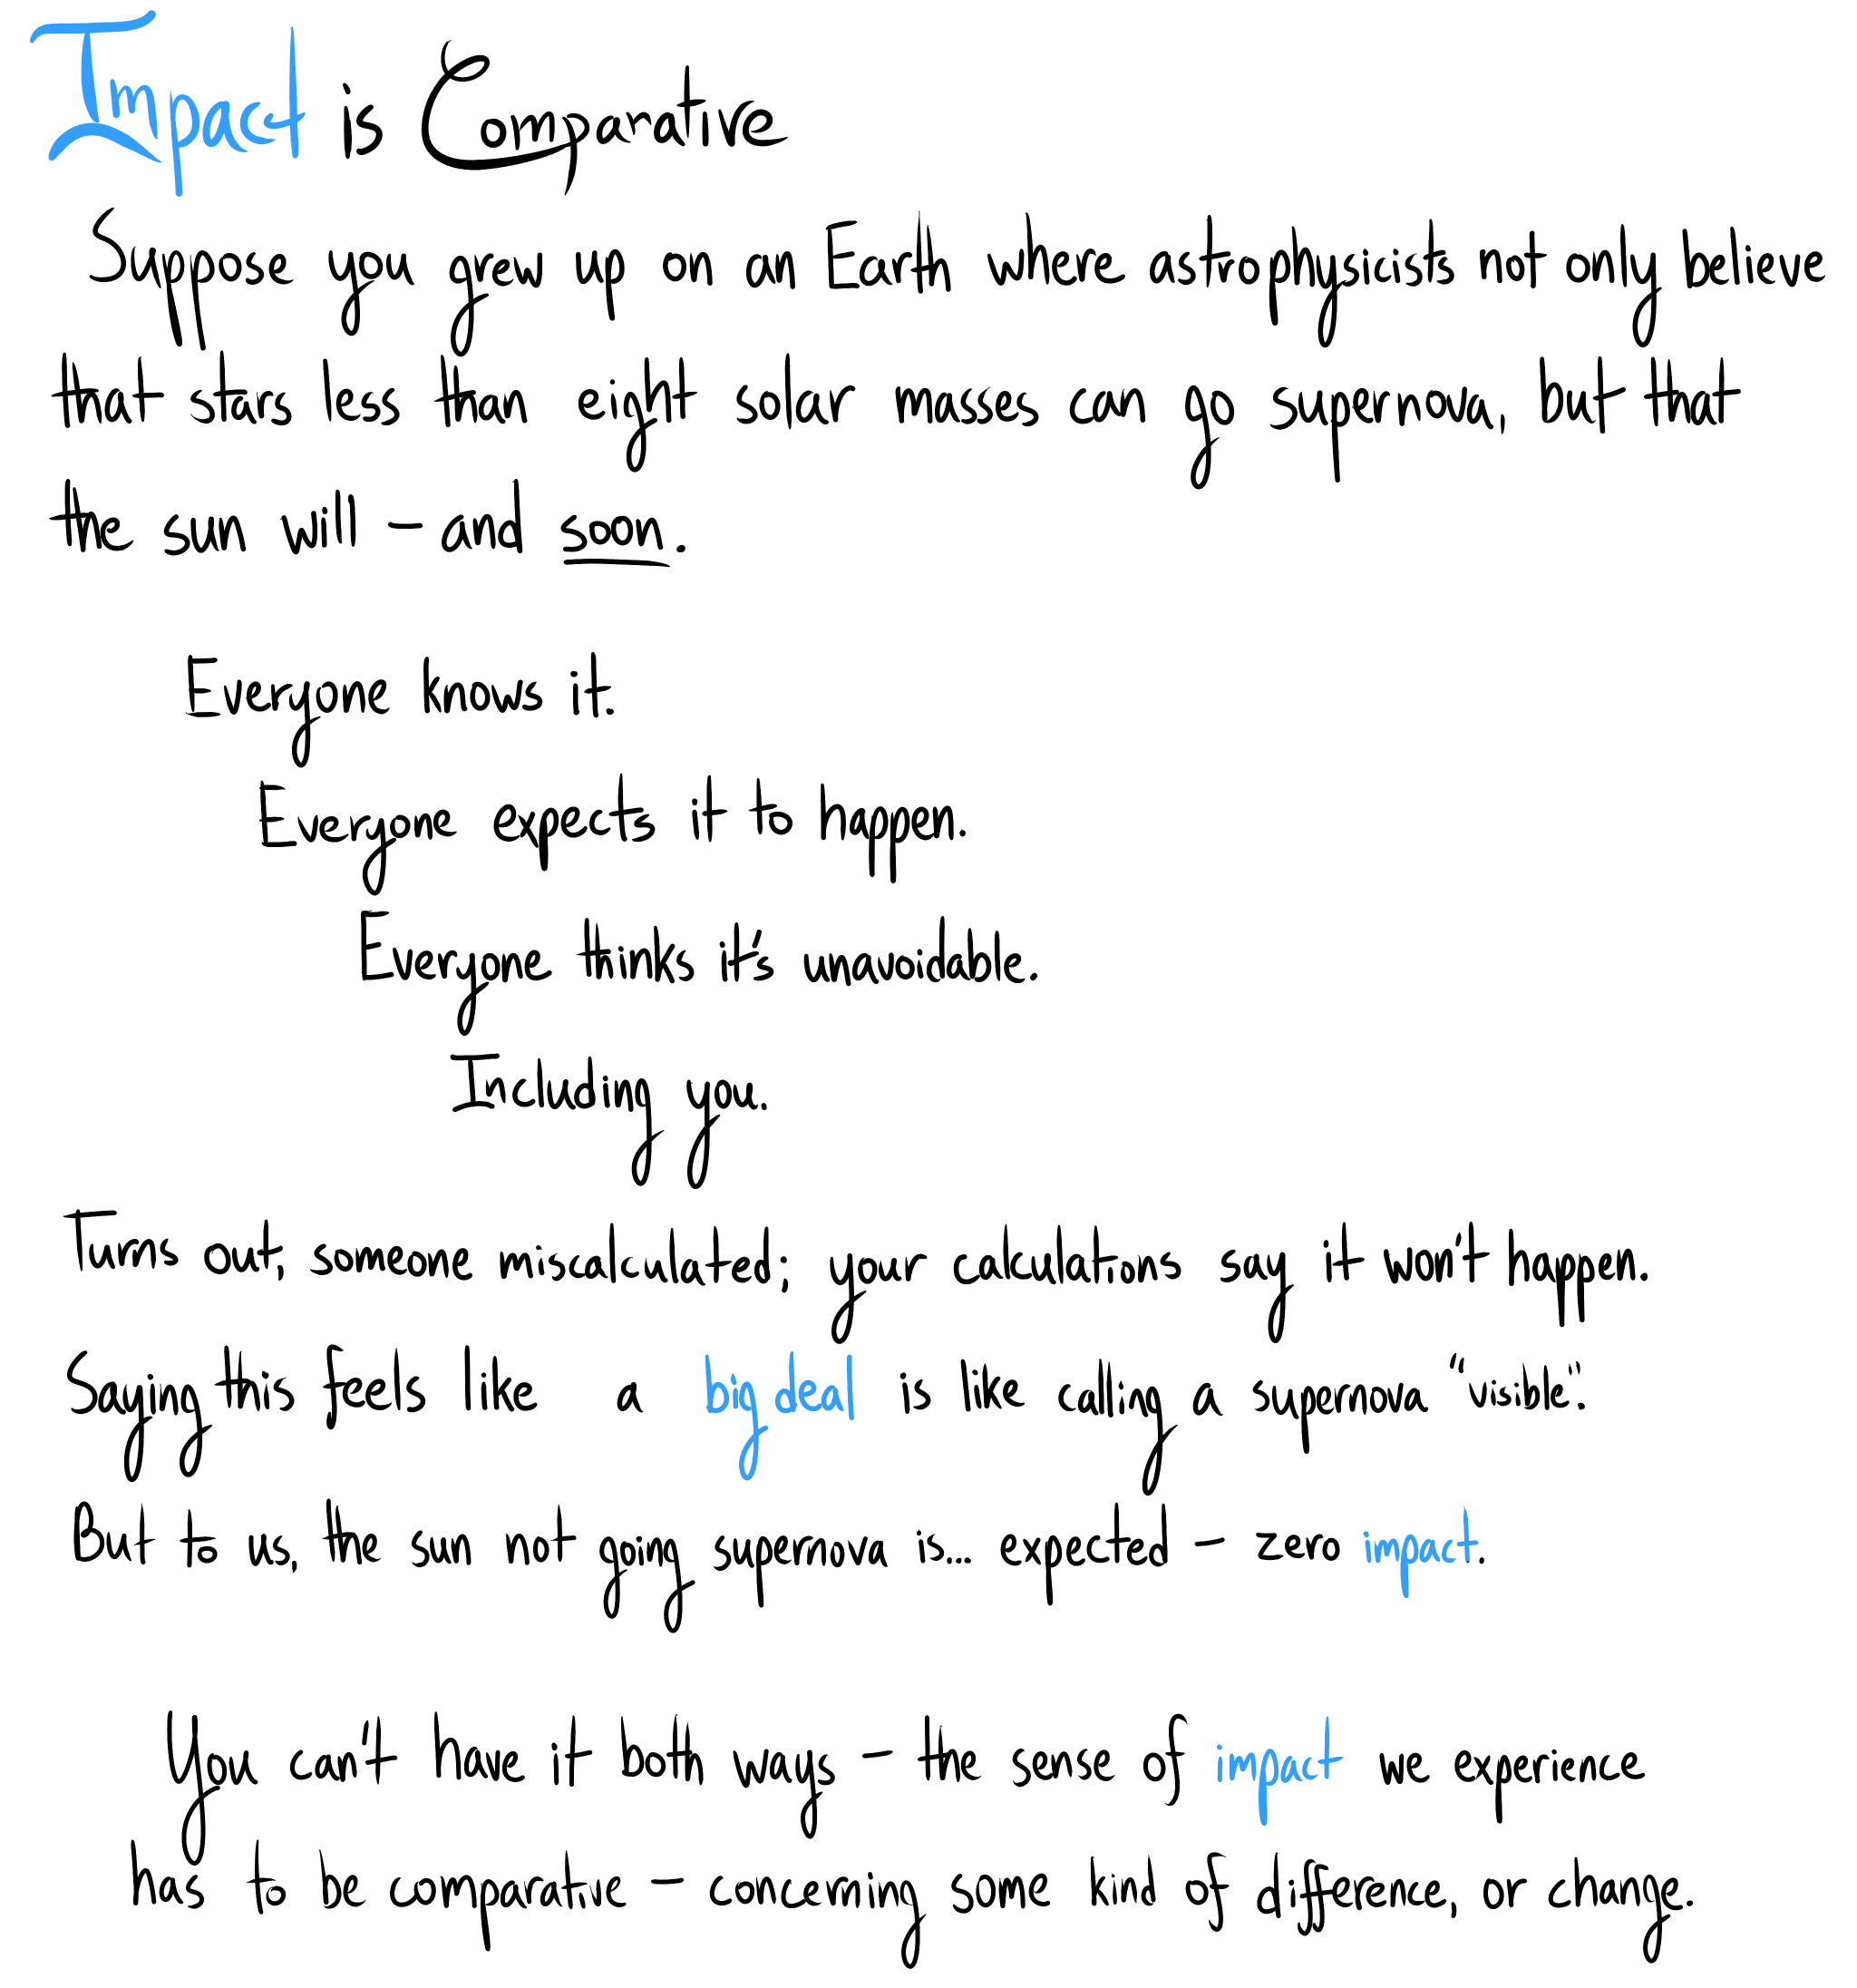 Impact is Comparative
Suppose you grew up on an Earth where astrophysicists not only believe
that stars less than eight solar masses can go supernova, but that
the sun will — and soon.
Everyone knows it.
Everyone expects it to happen.
Everyone thinks it's unavoidable.
Including you.
Turns out, someone miscalculated; your calculations say it won't happen.
Saying this feels like a big deal is like calling a supernova "visible".
But to us, the sun not going supernova is... expected — zero impact.
You can't have it both ways — the sense of impact we experience
has to be comparative — concerning some kind of difference, or change.